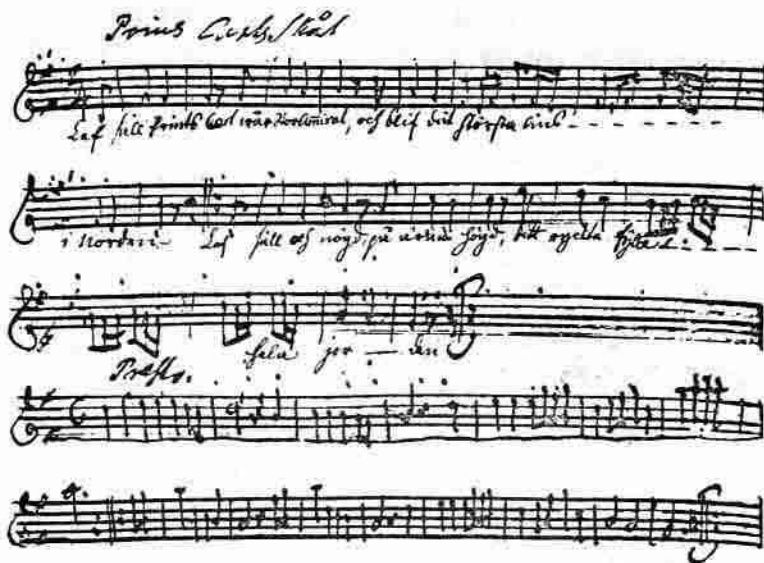 Prins Carls Skål
Lef säll Prints Carl wår StorAmiral, och blif det största lius
i Norden Lef säll och nögd, på ärones högd, ditt rycktte fylle
hela jorden
Presto.